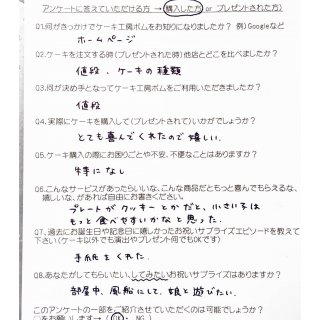 アンケートに答えていただける方 → 購入した方 or プレゼントされた方)
01.何がきっかけでケーキ工房ボムをお知りになりましたか？ 例)Googleなど
ホームページ
02.ケーキを注文する時(プレゼントされた時)他店とどこを比べましたか？
値段、ケーキの種類
03.何が決め手となってケーキ工房ボムをご利用いただきましたか？
値段
04.実際にケーキを購入して(プレゼントされて)いかがでしょうか？
とても喜んでくれたので嬉しい。
05.ケーキ購入の際にお困りごとや不安、不便なことはありますか？
特になし
06.こんなサービスがあったらいいな、こんな商品だともっと喜んでもらえるな、
嬉しいな、があれば自由にお書きください。
プレートがクッキーとかだと、小さい子は
もっと食べやすいかなと思った。
07.過去にお誕生日や記念日に嬉しかったお祝いサプライズエピソードを教えて
下さい(ケーキ以外でも演出やプレゼント何でもOKです)
手紙をくれた。
08.あなたがしてもらいたい、してみたいお祝いサプライズはありますか？
部屋中、風船にして、娘と遊びたい。
このアンケートの一部をご紹介させていただくのは可能でしょうか？
○をお願いします→ ( OK ・ NG )